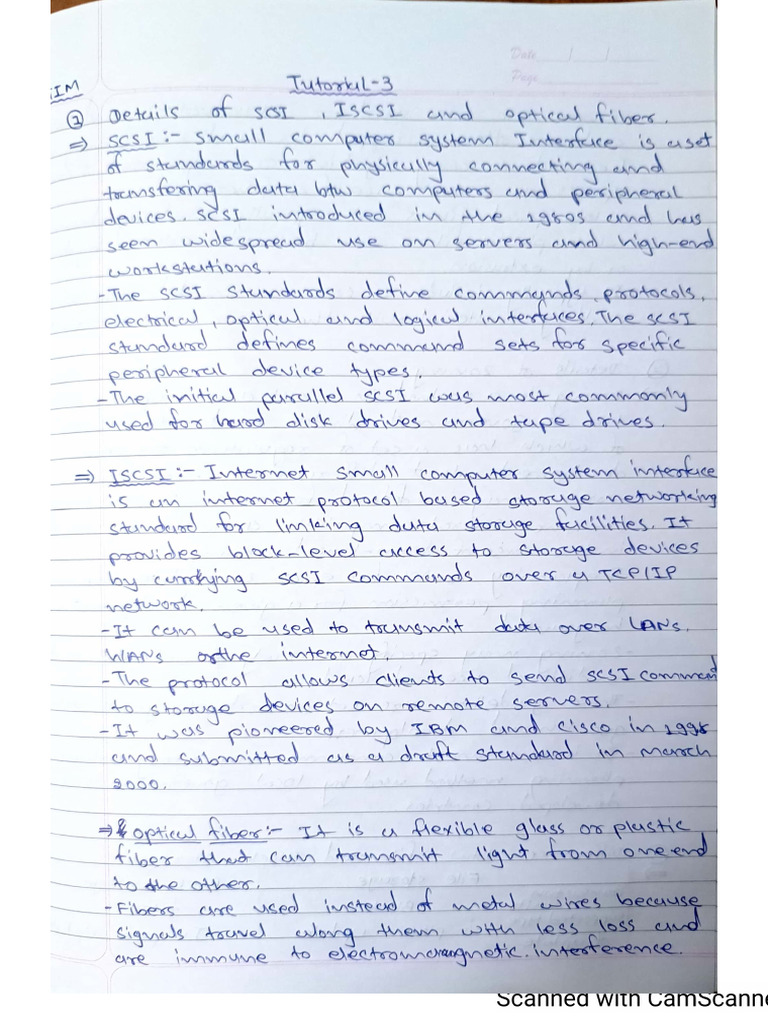 Date / /
Page
IM
Tutorial-3
② Details of SCSI, ISCSI and optical fiber.
⇒ SCSI :- small computer system Interface is a set
of standards for physically connecting and
transfering data btw computers and peripheral
devices. SCSI introduced in the 1980s and has
seen widespread use on servers and high-end
workstations.
- The SCSI standards define commands, protocols,
electrical, optical and logical interfaces. The SCSI
standard defines command sets for specific
peripheral device types.
- The initial parallel SCSI was most commonly
used for hard disk drives and tape drives.
⇒ ISCSI :- Internet small computer system interface
is an internet protocol based storage networking
standard for linking data storage facilities. It
provides block-level access to storage devices
by carrying SCSI commands over a TCP/IP
network.
- It can be used to transmit data over LANs,
WANs or the internet.
- The protocol allows clients to send SCSI command
to storage devices on remote servers.
- It was pioneered by IBM and cisco in 1998
and submitted as a draft standard in march
2000.
⇒ optical fiber:- It is a flexible glass or plastic
fiber that can transmit light from one end
to the other.
- Fibers are used instead of metal wires because
signals travel along them with less loss and
are immune to electromangnetic interference.
Scanned with CamScanne